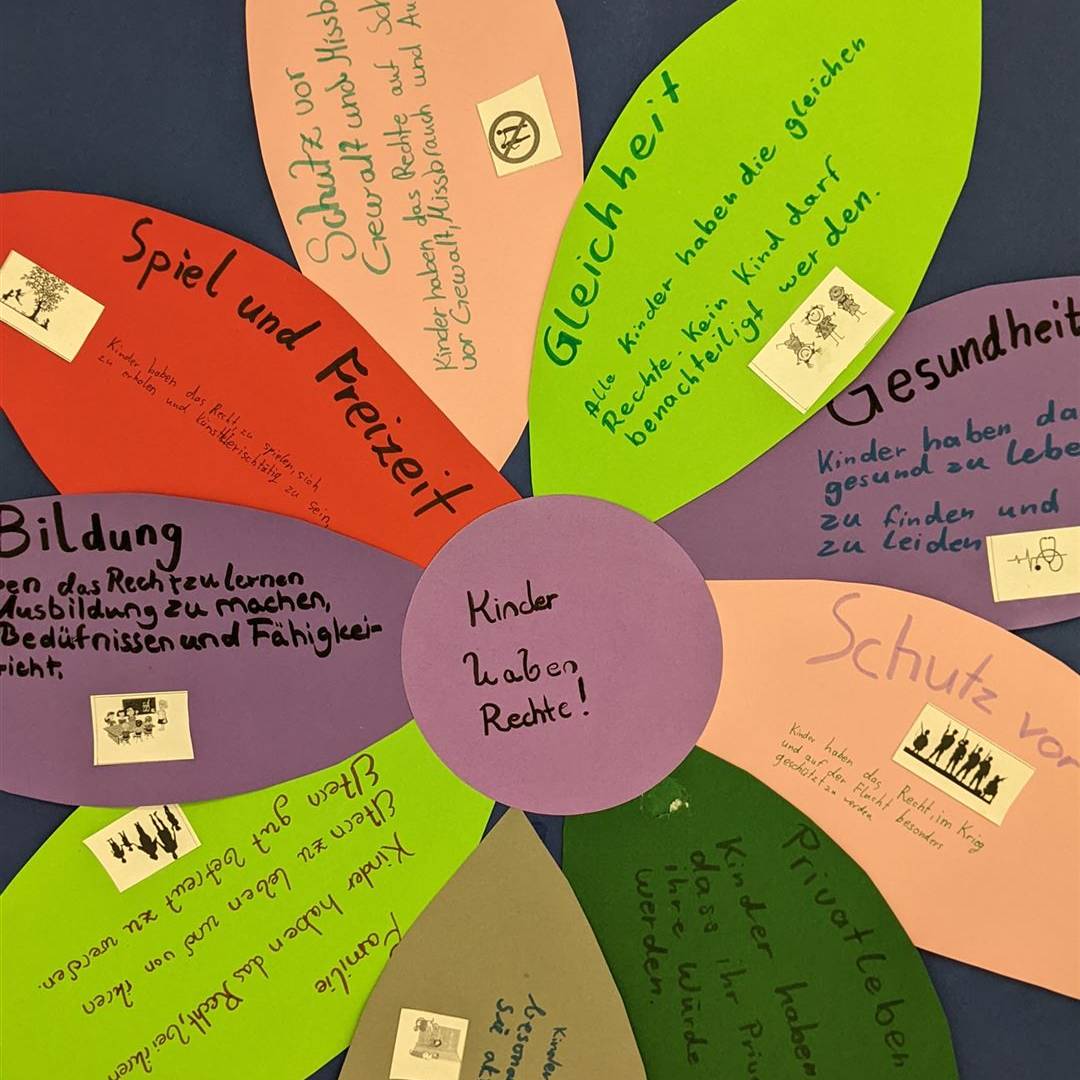 Kinder
haben
Rechte!
Schutz vor
Gewalt und Missb
Kinder haben das Rechte auf Sch
vor Gewalt, Missbrauch und Au
Gleichheit
Alle Kinder haben die gleichen
Rechte. Kein Kind darf
benachteiligt werden.
Gesundheit
Kinder haben da
gesund zu lebe
zu finden und
zu leiden
Schutz vor
Kinder haben das Recht, im Krieg
und auf der Flucht besonders
geschützt zu werden
Privatleben
Kinder haben
dass ihr Priv
ihre Würde
werden.
Kinder
beson
Sie
Familie
Kinder haben das Recht, bei ihren
Eltern zu leben und von ihren
Eltern gut betreut zu werden.
Bildung
ben das Recht zu lernen
Ausbildung zu machen,
Bedüfnissen und Fähigkei-
richt.
Spiel und Freizeit
Kinder haben das Recht, zu spielen, sich
zu erholen und künstlerisch tätig zu sein,